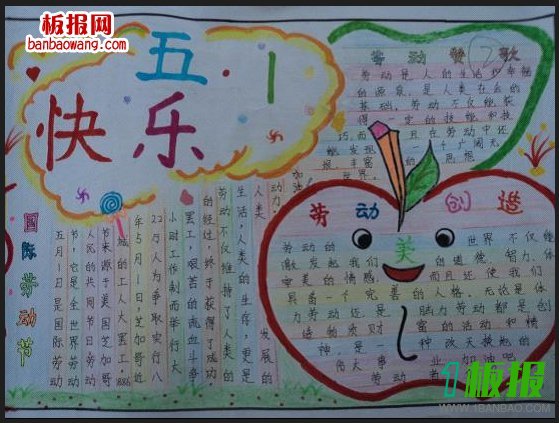 板报网
banbaowang.com
五 1
快乐
劳动赞歌
劳动是人的生活
的源泉，是人类社会的
基础，劳动不仅能获
得一定的技能和技
巧，而且在劳动中还
能发现一个广阔
丰富的思想
世界。
国际劳动节
五月1日是国际劳动
节，它是全世界劳动
人民的共同节日劳动
节来源于美国芝加哥
城的工人大罢工，1886
年5月1日，芝加哥近
22万人为争取实行八
小时工作制而举行大
罢工，艰苦的流血斗争
的经过，终于获得了成功
劳动不仅维持了人类的
生活，人类的生存，更是
人类 发展的
动力。
劳动创造
美
劳动的 世界不仅能
激发起我们 的道德，智力，体
美的情感， 而且还使我们
具备一个完善的人格。无论是体
力劳动还是 脑力劳动都是创
造物质财富的活动和精
神，是一种改天换地的
伟大事业 加油吧
劳动
1板报
WWW.1BANBAO.COM